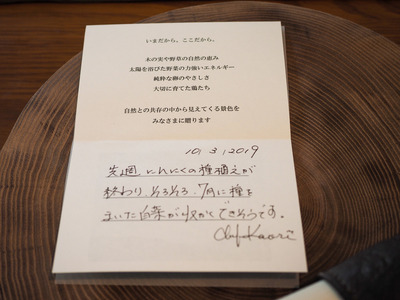 いまだから、ここだから、
木の実や野草の自然の恵み
太陽を浴びた野菜の力強いエネルギー
純粋な卵のやさしさ
大切に育てた鶏たち
自然との共存の中から見えてくる景色を
みなさまに贈ります
10, 3, 2019
先週、にんにくの種植えが
終わり、そろそろ、7月に種を
まいた白菜が収かくできそうです。
Chef Kaori